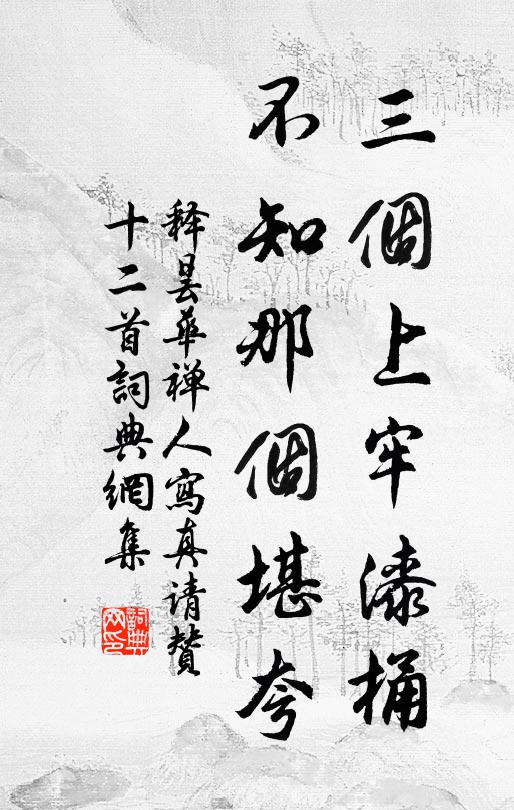 三個上牢漆桶
不知那個堪夸
释昙華禅人寫真请贊
十二首詞典網集
詞典網印